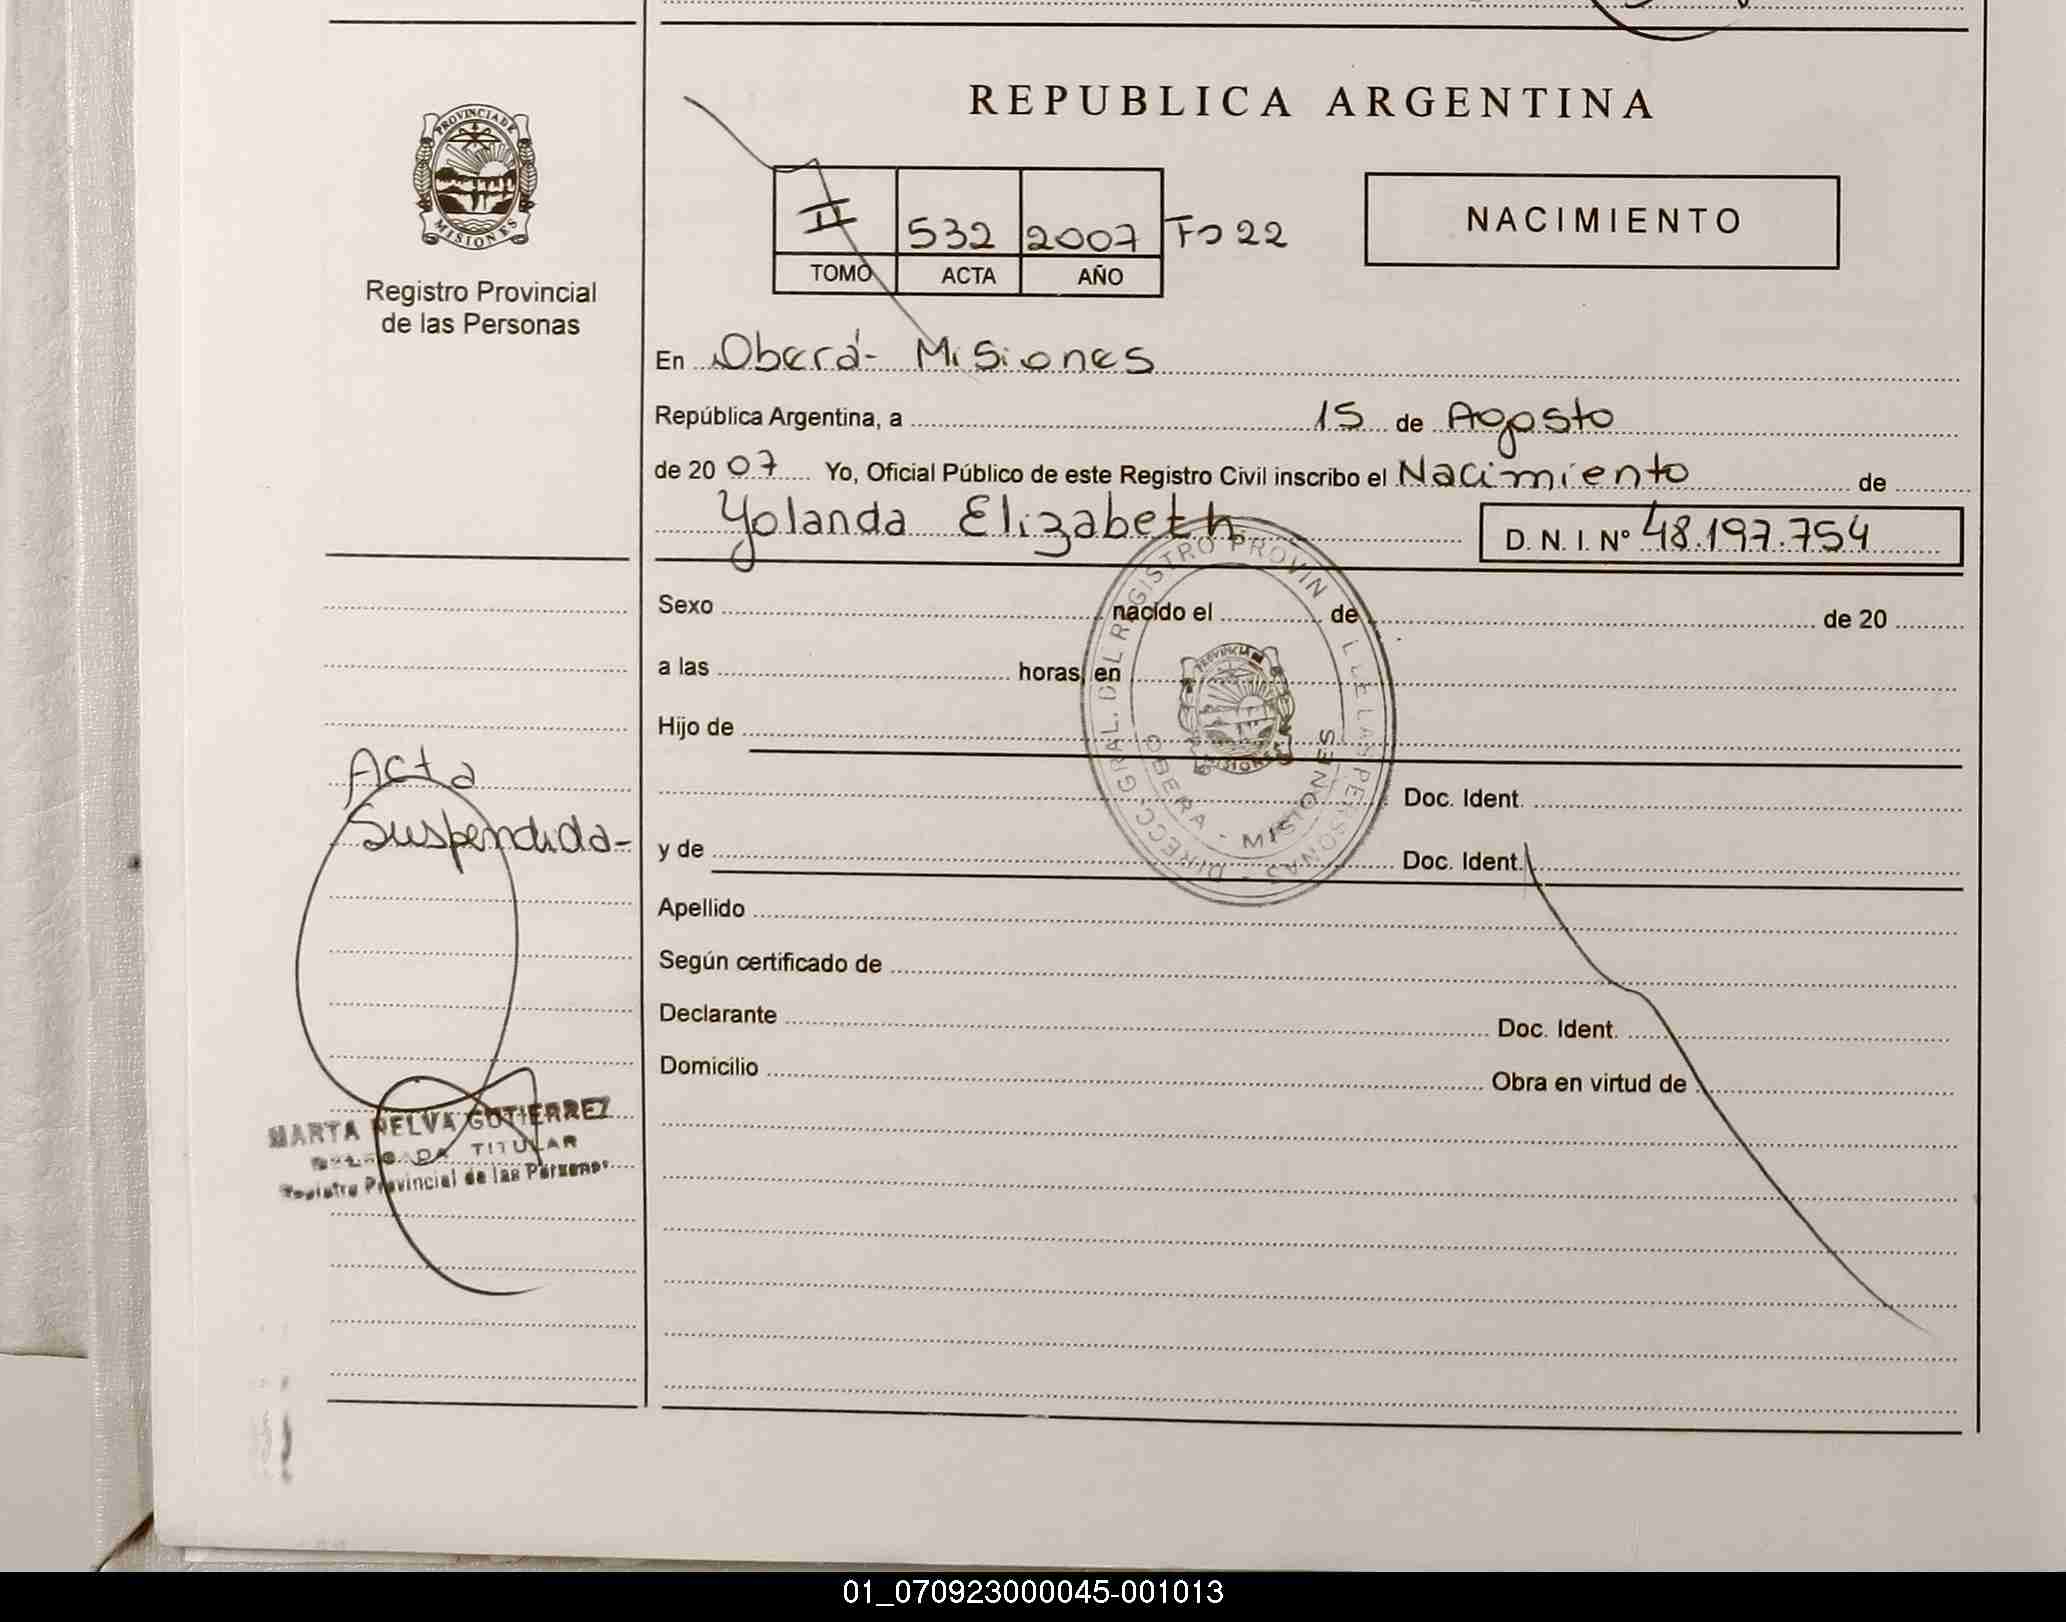 REPUBLICA ARGENTINA
PROVINCIA DE
MISIONES
Registro Provincial
de las Personas
II 532 2007 Fº 22
TOMO ACTA AÑO
NACIMIENTO
En Oberá - Misiones
República Argentina, a 15 de Agosto
de 20 07 Yo, Oficial Público de este Registro Civil inscribo el Nacimiento de
Yolanda Elizabeth D. N. I. Nº 48.197.754
Sexo nacido el de de 20
a las horas, en
Hijo de
Doc. Ident.
y de Doc. Ident.
Apellido
Según certificado de
Declarante Doc. Ident.
Domicilio Obra en virtud de
DIRECC. GRAL. DEL REGISTRO PROVIN DE LAS PERSONAS
PROVINCIA DE
MISIONES
OBERA - MISIONES
Acta
Suspendida-
MARTA NELVA GUTIERREZ
DELEGADA TITULAR
Registro Provincial de las Personas
01_070923000045-001013